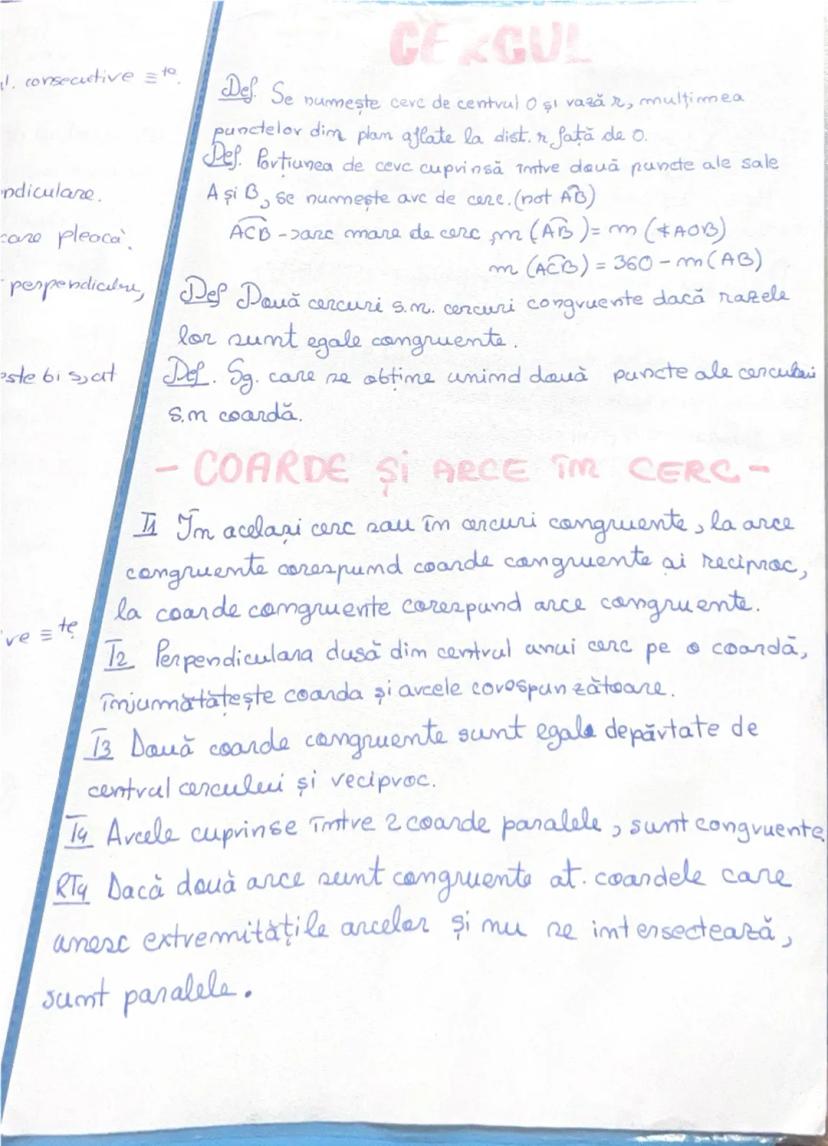 CERCUL
consecutive ≡te.
Def. Se numește cerc de centrul O și rază r, mulțimea
punctelor din plan aflate la dist. r față de O.
Def. Porțiunea de cerc cuprinsă între două puncte ale sale
ndiculare.
A și B, se numește arc de cerc. (not A͡B)
care pleacă.
A͡CB -> arc mare de cerc, m (A͡B) = m (∢AOB)
m (A͡CB) = 360 - m(AB)
perpendiculare,
Def Două cercuri s.n. cercuri congruente dacă razele
lor sunt egale congruente.
este bi s,at
Def. Sg. care se obține unind două puncte ale cercului
s.m coardă.
- COARDE și ARCE în CERC -
T1 În același cerc sau în cercuri congruente, la arce
congruente corespund coarde congruente ai reciproc,
la coarde congruente corespund arce congruente.
ve ≡ te
T2 Perpendiculara dusă din centrul unui cerc pe o coardă,
înjumătățește coarda și arcele corospunzătoare.
T3 Două coarde congruente sunt egale depărtate de
centrul cercului și reciproc.
T4 Arcele cuprinse între 2 coarde paralele, sunt congruente
RT4 Dacă două arce sunt congruente at. coardele care
unesc extremitățile arcelor și nu se intersectează,
sunt paralele.